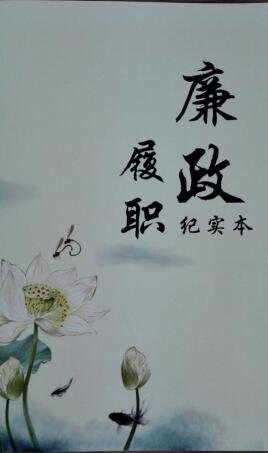 廉政
履职
纪实本